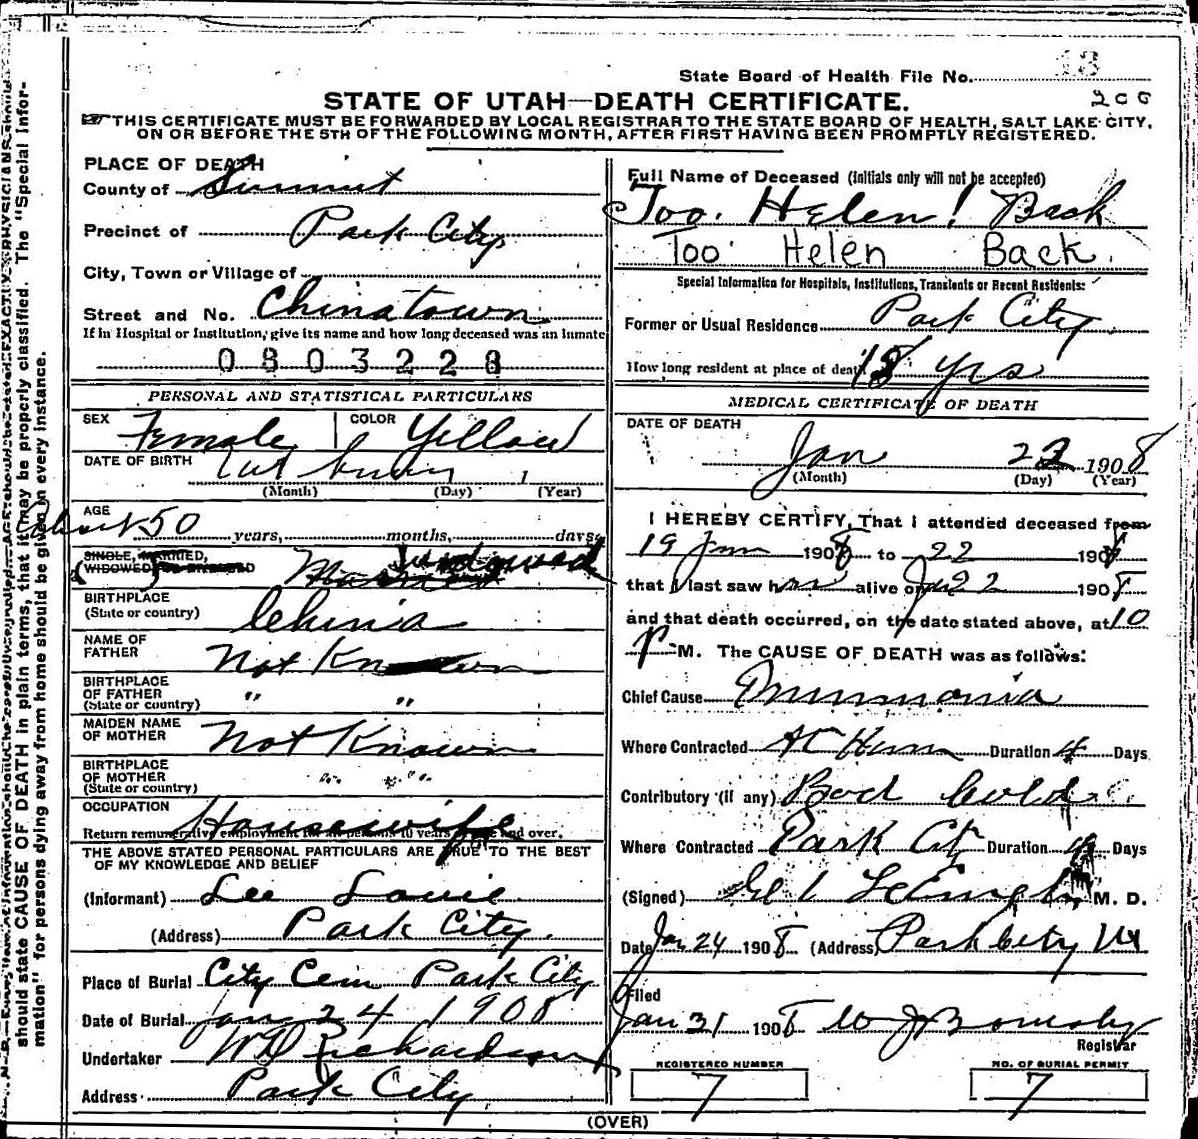 State Board of Health File No. 13
200
STATE OF UTAH—DEATH CERTIFICATE.
THIS CERTIFICATE MUST BE FORWARDED BY LOCAL REGISTRAR TO THE STATE BOARD OF HEALTH, SALT LAKE CITY,
ON OR BEFORE THE 5TH OF THE FOLLOWING MONTH, AFTER FIRST HAVING BEEN PROMPTLY REGISTERED.
PLACE OF DEATH
County of Summit
Precinct of Park City
City, Town or Village of
Street and No. Chinatown
If in Hospital or Institution, give its name and how long deceased was an inmate
0803228
PERSONAL AND STATISTICAL PARTICULARS
SEX Female COLOR Yellow
DATE OF BIRTH
(Month) (Day) (Year)
AGE
About 50 years, months, days
SINGLE, MARRIED,
WIDOWED, OR DIVORCED Widowed
BIRTHPLACE
(State or country) China
NAME OF
FATHER Not Known
BIRTHPLACE
OF FATHER
(State or country) " "
MAIDEN NAME
OF MOTHER Not Known
BIRTHPLACE
OF MOTHER
(State or country) " "
OCCUPATION Housewife
Return remunerative employment for all persons 10 years of age and over.
THE ABOVE STATED PERSONAL PARTICULARS ARE TRUE TO THE BEST
OF MY KNOWLEDGE AND BELIEF
(Informant) Lee Louie
(Address) Park City.
Place of Burial City Cem Park City
Date of Burial Jany 24 1908
Undertaker WD Richardson
Address Park City
Full Name of Deceased (Initials only will not be accepted)
Too. Helen! Back
Too Helen Back.
Special Information for Hospitals, Institutions, Transients or Recent Residents:
Former or Usual Residence Park City
How long resident at place of death 18 yrs
MEDICAL CERTIFICATE OF DEATH
DATE OF DEATH
Jan 22 1908
(Month) (Day) (Year)
I HEREBY CERTIFY, That I attended deceased from
19 Jan 1908 to 22 1908
that I last saw her alive on Jan 22 1908
and that death occurred, on the date stated above, at 10
P M. The CAUSE OF DEATH was as follows:
Chief Cause Pneumonia
Where Contracted At Home Duration 4 Days
Contributory (if any) Bad Cold
Where Contracted Park City Duration Days
(Signed) M. D.
Date Jan 24 1908 (Address) Park City Ut
Filed
Jan 31 1908
Registrar
REGISTERED NUMBER
7
NO. OF BURIAL PERMIT
7
(OVER)
should state CAUSE OF DEATH in plain terms, that it may be properly classified. The "Special Infor-
mation" for persons dying away from home should be given in every instance.